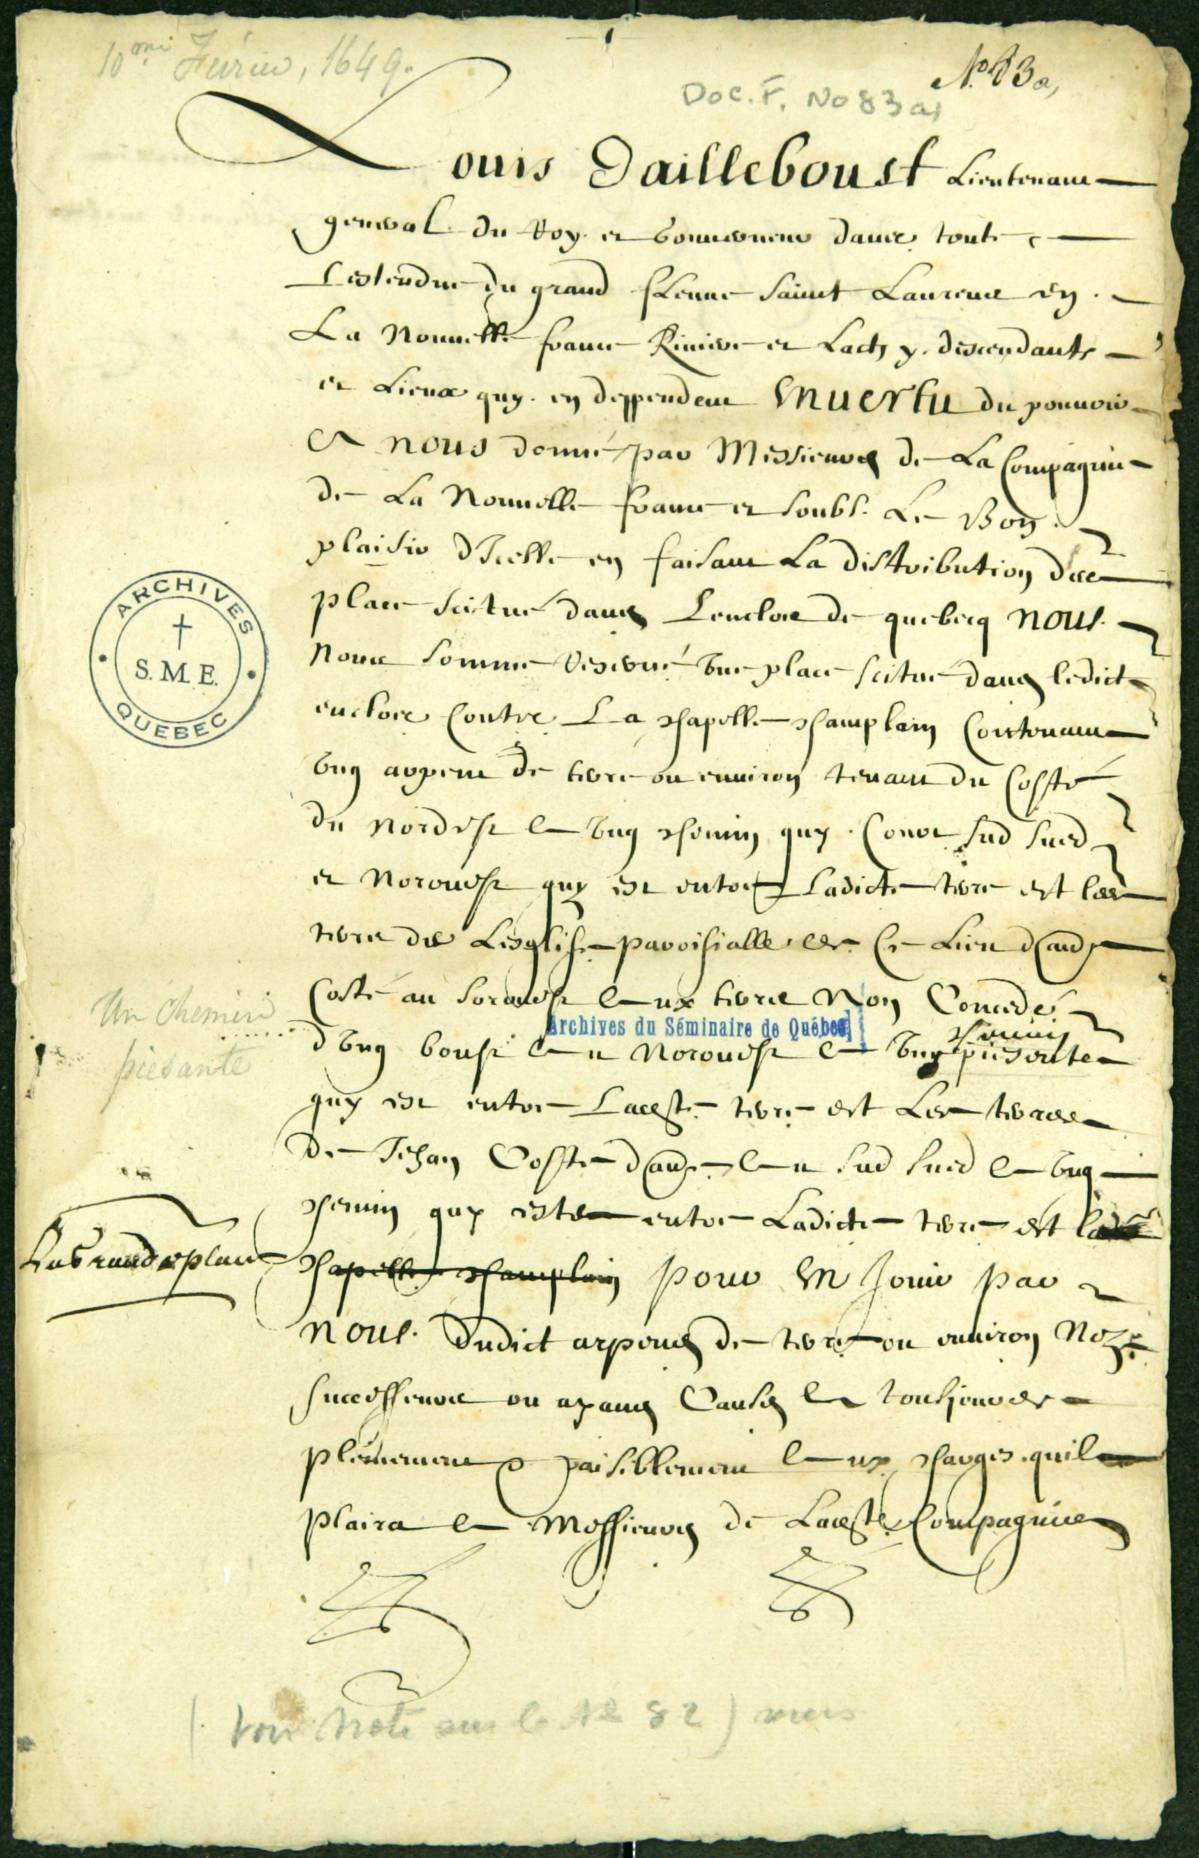 10me Février, 1649.
No 83 a,
Doc. F. No 83 a,
Louis Dailleboust Lieutenant
general du Roy et Gouverneur dans toute
Lestendue du grand fleuue Saint Laurens en
La Nouuelle france Riuiere et Lacs y descendants
et Lieux quy en deppendent Enuertu du pouuoir
A nous donné par Messieurs de La Compagnie
de La Nouuelle france et soubs Le Bon
plaisir d'Icelle en faisant La distribution des
places scitué dans Lenclos de quebecq nous
Nous sommes reserué vne place scitué dans ledict
enclos contre La chapelle champlain contenant
vng arpent de terre ou enuiron tenant du Costé
du Nordest A vng chemin quy court sud suest
et Norouest quy est entre Ladicte terre et les
terres de Lesglise parroisialle de Ce Lieu daude
Costé au Sorouest Aux terres Non Concedés
ARCHIVES S.M.E. QUEBEC
Un chemin
piesante
Archives du Séminaire de Québec
chemin
dvng boust Au Norouest A vng piesente
quy est entre Laceste terre et Les terres
de Jehan Coste daude Au sud suest A vng
chemin quy est entre Ladicte terre et la
chapelle champlain pour En Jouir par
nous dudict arpent de terre ou enuiron Noz
successeurs ou ayans Cause A tousjours
plainement & paisiblement Aux charges quil
plaira A Messieurs de Laceste Compagnie
(Voir Note sur le No 82)